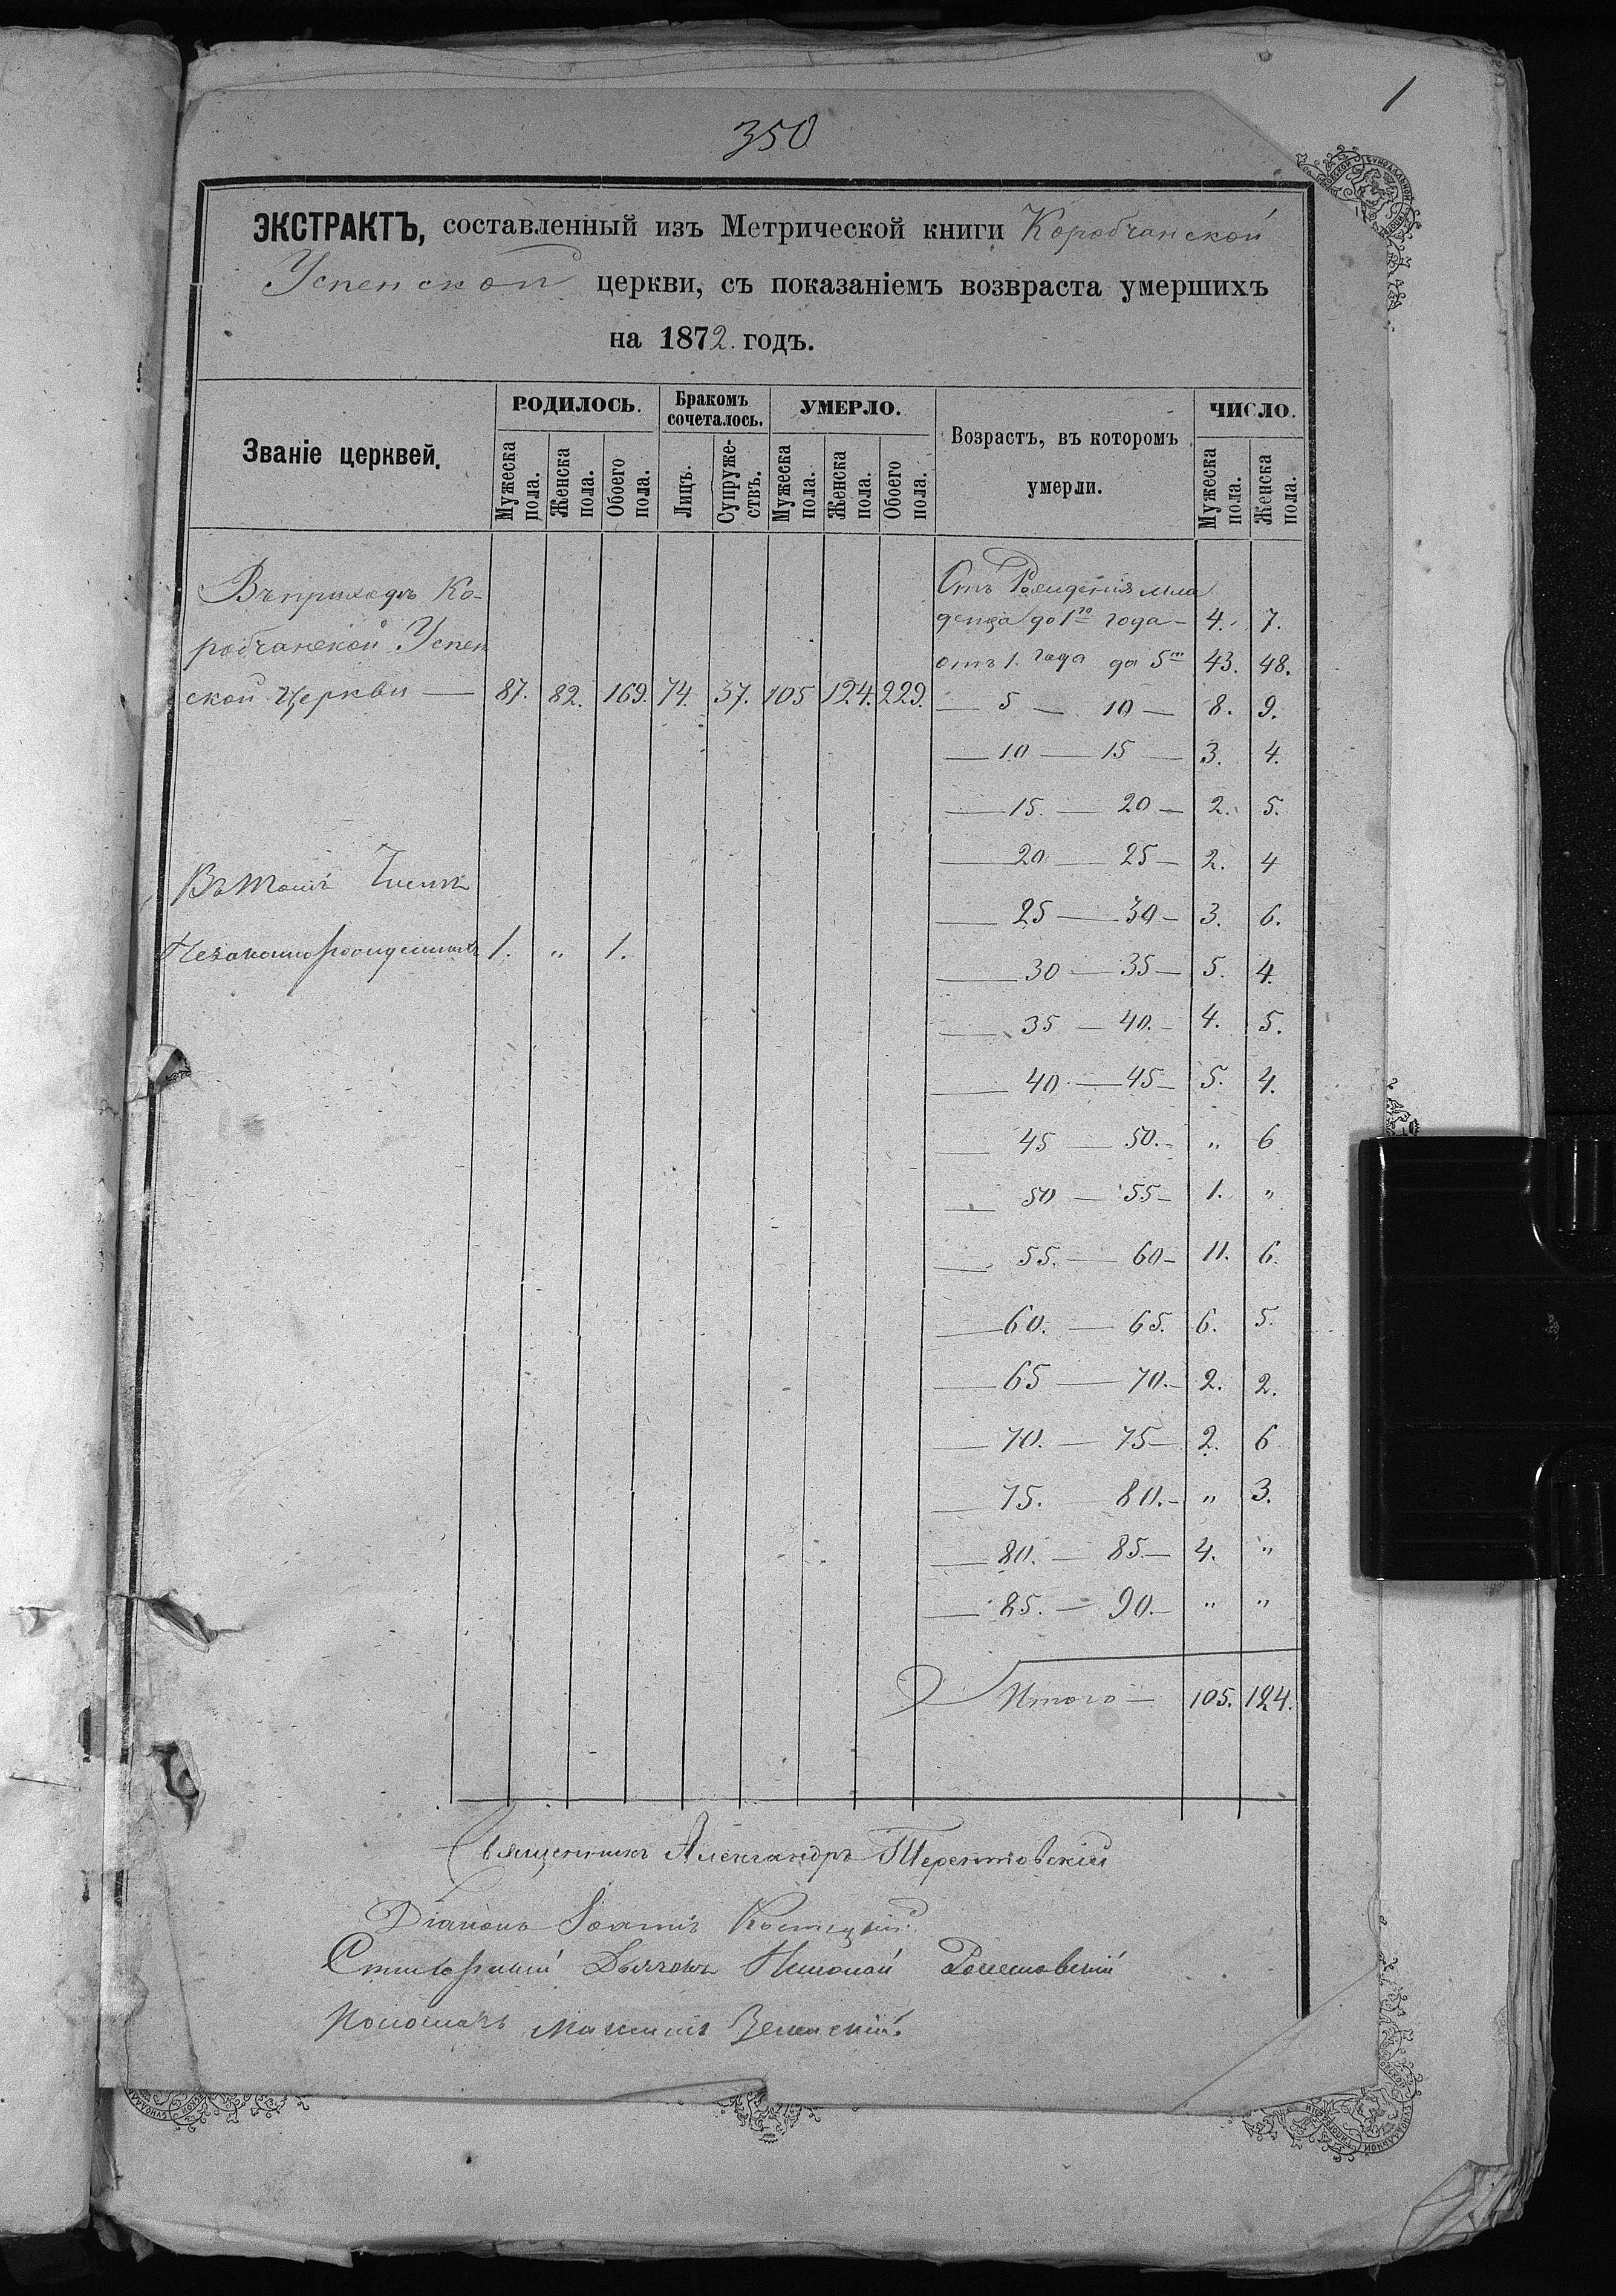 1
350
ЭКСТРАКТЪ, составленный изъ Метрической книги Коробчанской
Успенской церкви, съ показаніемъ возвраста умершихъ
на 1872. годъ.
Званіе церквей.
РОДИЛОСЬ.
Бракомъ сочеталось.
УМЕРЛО.
Возрастъ, въ которомъ умерли.
ЧИСЛО.
Мужеска пола.
Женска пола.
Обоего пола.
Лицъ.
Супружествъ.
Мужеска пола.
Женска пола.
Обоего пола.
Мужеска пола.
Женска пола.
Въ приходѣ Ко-
робчанской Успен
ской Церкви — 87. 82. 169. 74. 37. 105 124. 229.
Въ томъ Числѣ
Незаконнорожденныхъ 1. " 1.
Отъ Рожденія мла
денца до 1го года — 4. 7.
отъ 1. года до 5ти 43. 48.
— 5 — 10 — 8. 9.
— 10 — 15 — 3. 4.
— 15. — 20 — 2. 5.
— 20 — 25 — 2. 4
— 25 — 30 — 3. 6.
— 30 — 35 — 5. 4.
— 35 — 40. — 4. 5.
— 40 — 45 — 5. 4.
— 45 — 50. — " 6
— 50 — 55 — 1. "
— 55. — 60 — 11. 6.
— 60. — 65. 6. 5.
— 65 — 70. — 2. 2.
— 70. — 75 — 2. 6
— 75. 80. — " 3.
— 80. — 85 — 4. "
— 85. — 90. — " "
Итого — 105. 124.
Священникъ Александръ
Діаконъ Іоаннъ
Дьячокъ Николай
Пономарь